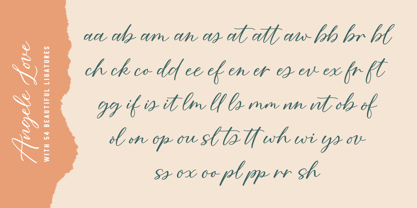 Angele Love
WITH 54 BEAUTIFUL LIGATURES
aa ab am an as at att aw bb br bl
ch ck co dd ee ef en er es ev ex fr ft
gg if is it lm ll ls mm nn nt ob of
ol on op ou sl ts tt wh wi ys ov
ss ox oo pl pp rr sh